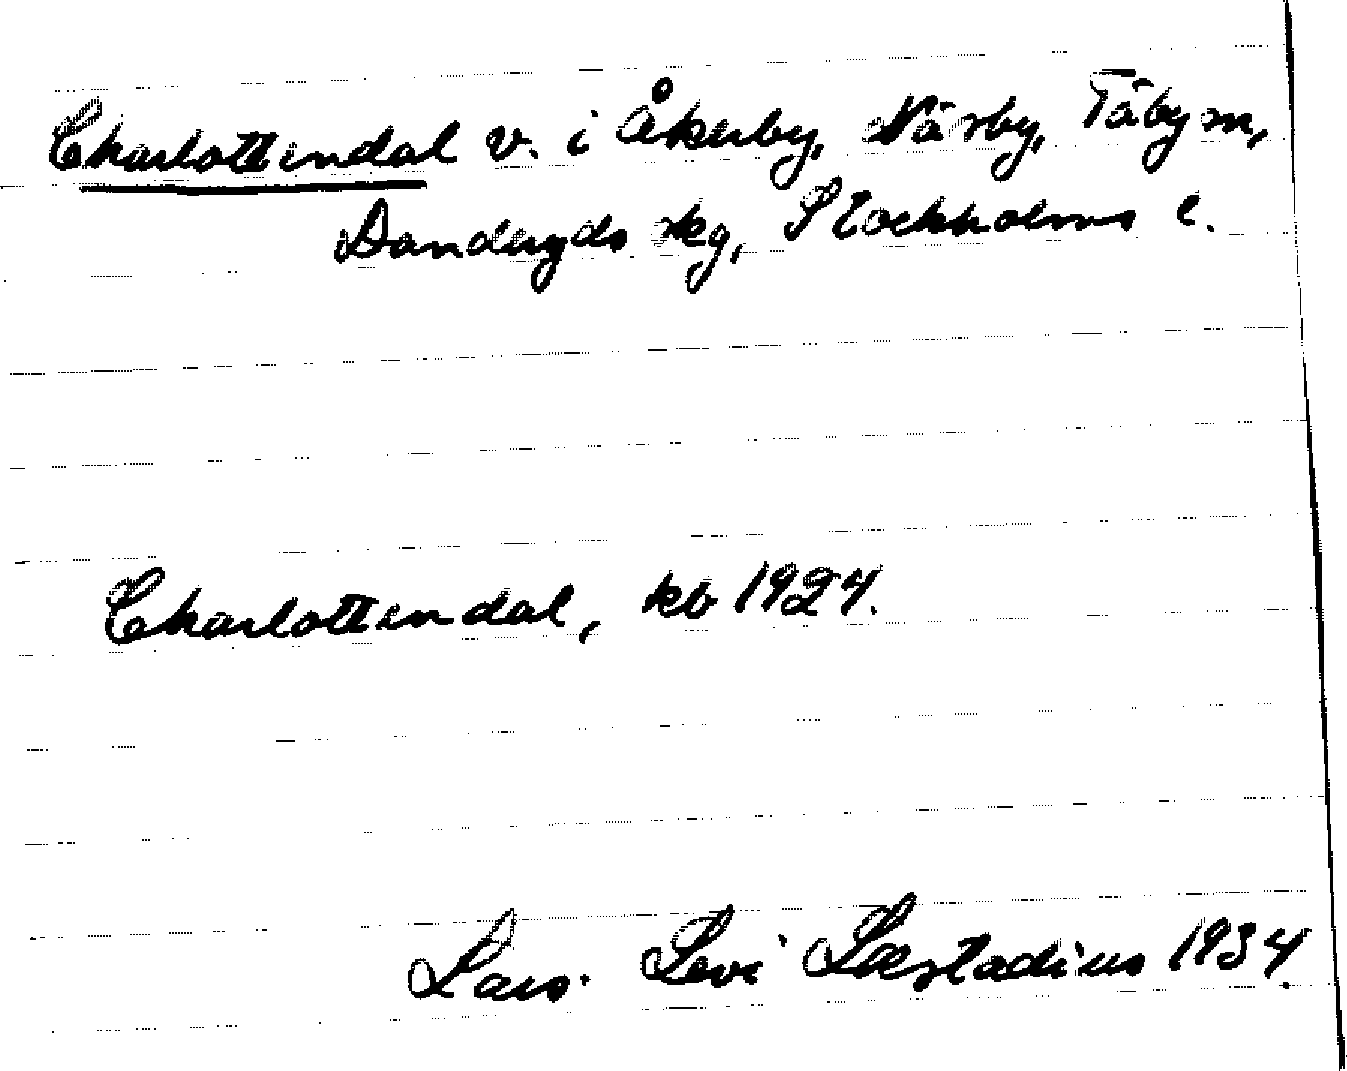 Charlottendal v. i Åkerby, Näsby, Täby sn,
Danderyds skg, Stockholms l.
Charlottendal, kb 1924.
Lars Levi Læstadius 1934.